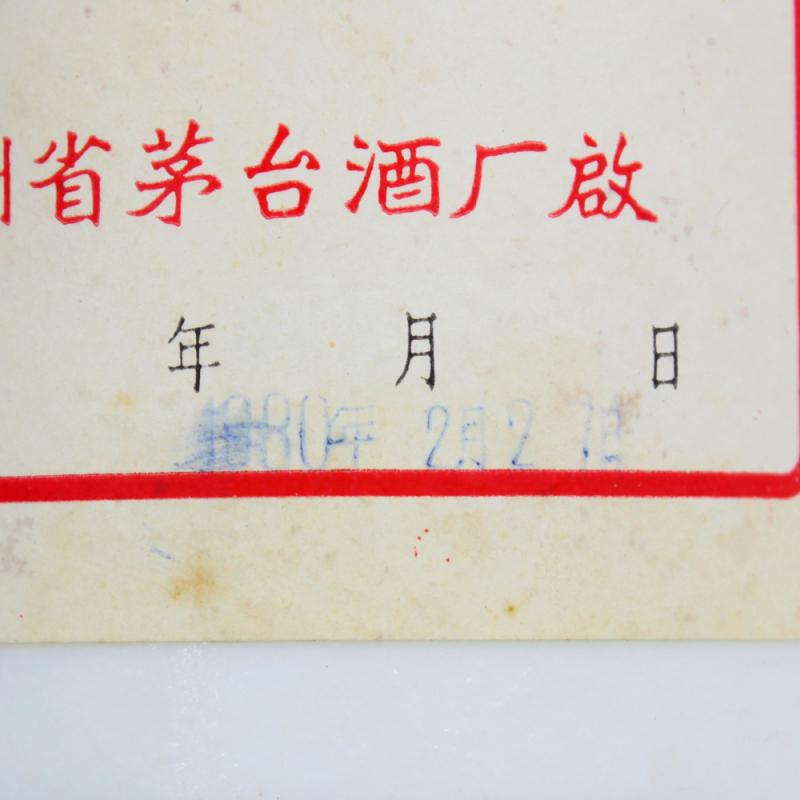 州省茅台酒厂啟
年 月 日
1980年 2月27日